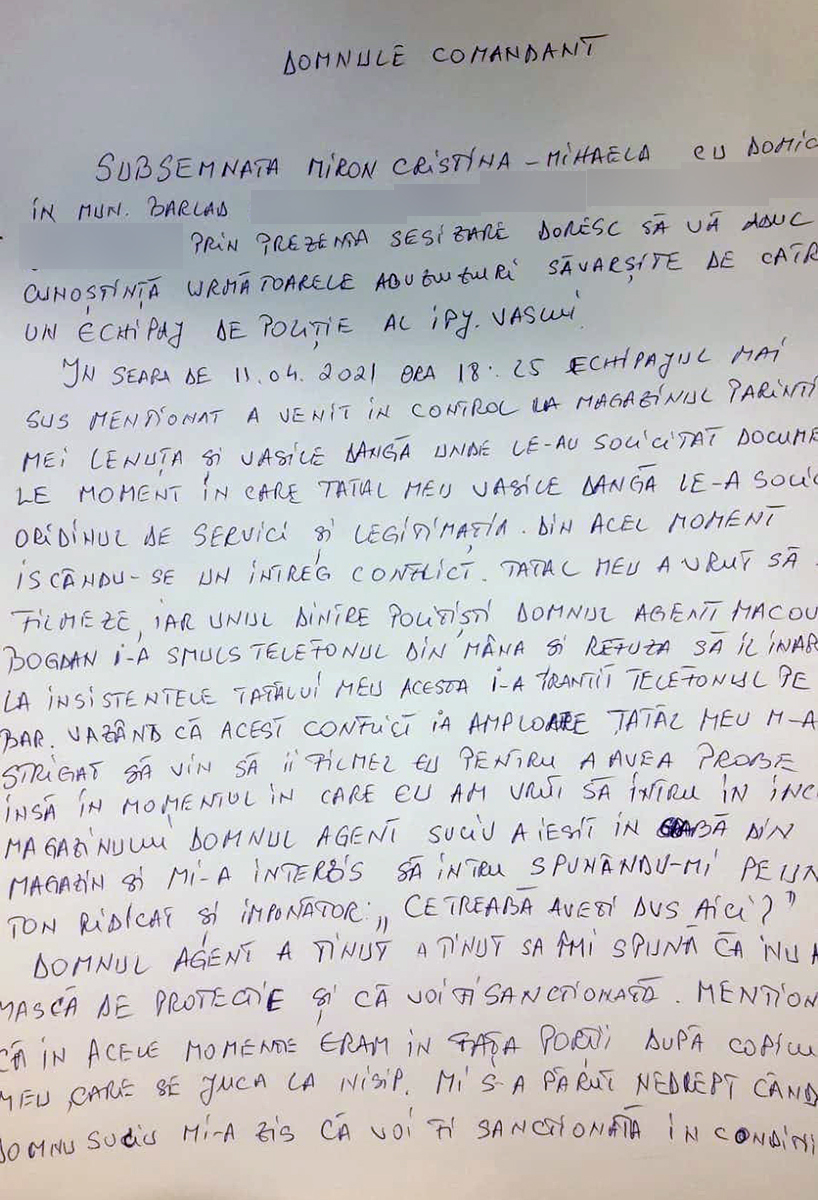 DOMNULE COMANDANT
SUBSEMNATA MIRON CRISTINA-MIHAELA CU DOMIC
ÎN MUN. BARLAD
PRIN PREZENTA SESIZARE DORESC SĂ VĂ ADUC
CUNOȘTINȚĂ URMĂTOARELE ABUZUZURI SĂVARȘITE DE CĂTR
UN ECHIPAJ DE POLIȚIE AL IPJ. VASLUI
ÎN SEARA DE 11.04.2021 ORA 18:25 ECHIPAJUL MAI
SUS MENTIONAT A VENIT IN CONTROL LA MAGAZINUL PARINTI
MEI LENUȚA ȘI VASILE DANGĂ UNDE LE-AU SOLICITAT DOCUME
LE MOMENT ÎN CARE TATAL MEU VASILE DANGĂ LE-A SOLIC
ORIDINUL DE SERVICI ȘI LEGITIMAȚIA. DIN ACEL MOMENT
ISCÂNDU-SE UN ÎNTREG CONFLICT. TATAL MEU A VRUT SĂ
FILMEZE, IAR UNUL DINTRE POLITIȘTI DOMNUL AGENT MACOV
BOGDAN I-A SMULS TELEFONUL DIN MÂNA ȘI REFUZA SĂ IL INAP
LA INSISTENTELE TATĂLUI MEU ACESTA I-A TRANTIT TELEFONUL PE
BAR. VAZÂND CĂ ACEST CONFLICT IA AMPLOARE TATĂL MEU M-A
STRIGAT SĂ VIN SĂ II FILMEZ EU PENTRU A AVEA PROBE
ÎNSĂ ÎN MOMENTUL IN CARE EU AM VRUT SĂ INTRU IN INC
MAGAZINULUI DOMNUL AGENT SUCIU A IESIT ÎN GRABĂ DIN
MAGAZIN ȘI MI-A INTERZIS SĂ INTRU SPUNÂNDU-MI PE UN
TON RIDICAT ȘI IMPUNATOR: „CE TREABĂ AVEȚI DVS AICI?"
DOMNUL AGENT A ȚINUT A ȚINUT SA ÎMI SPUNĂ CĂ NU A
MASCĂ DE PROTECTIE ȘI CĂ VOI FI SANCTIONATĂ. MENTION
CĂ IN ACELE MOMENTE ERAM ÎN FAȚA PORTII DUPĂ COPILU
MEU, CARE SE JUCA LA NISIP. MI S-A PĂRUT NEDREPT CÂND
DOMNU SUCIU MI-A ZIS CĂ VOI FI SANCTIONATĂ IN CONDIȚII